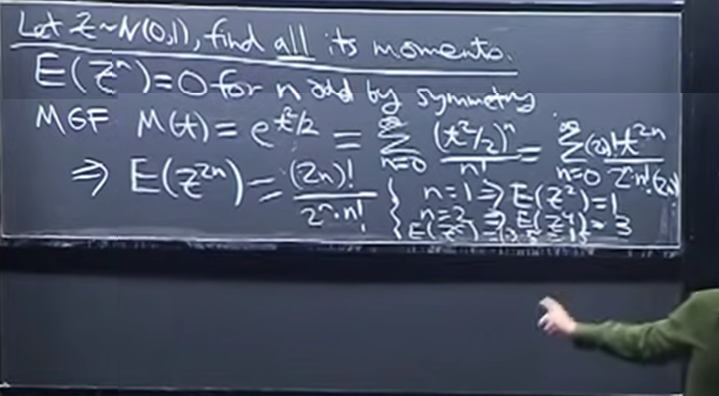 Let Z~N(0,1), find all its moments.
E(Zⁿ)=0 for n odd by symmetry
MGF M(t) = e^{t²/2} = Σ_{n=0}^{∞} (t²/2)ⁿ/n! = Σ_{n=0}^{∞} (2n)! t^{2n}/(2ⁿ n! (2n)!)
⇒ E(Z^{2n}) = (2n)!/(2ⁿ·n!)
n=1 ⇒ E(Z²)=1
n=2 ⇒ E(Z⁴)=3
E(Z⁶)=1·3·5=15